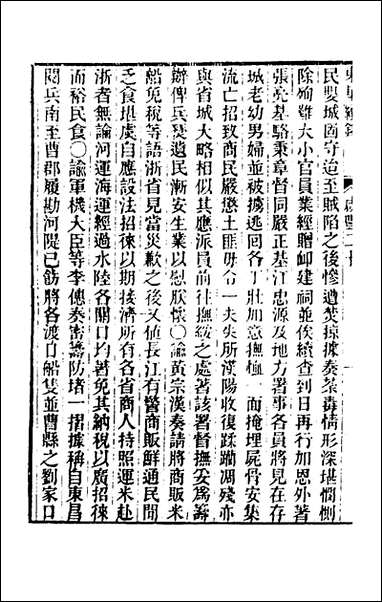 東華續錄 咸豐二十
民嬰城固守迨至賊陷之後慘遭焚掠據奏荼毒情形深堪憫惻
除殉難大小官員業經贈卹建祠並俟續查到日再行加恩外著
張亮基駱秉章督同嚴正基江忠源及地方署事各員將見在存
城老幼男婦並被擄逃回各丁壯加意撫恤一面掩埋屍骨安集
流亡招致商民嚴懲土匪毋令一夫失所漢陽收復蹂躪凋殘亦
與省城大略相似其應派員前往撫綏之處著該署督撫妥爲籌
辦俾兵燹遺民漸安生業以慰朕懷○諭黃宗漢奏請將商販米
船免稅等語浙省見當災歉之後又値長江有警商販鮮通民間
乏食堪虞自應設法招徠以期接濟所有各省商人持照運米赴
浙者無論河運海運經過水陸各關口均著免其納稅以廣招徠
而裕民食○諭軍機大臣等李僡奏密籌防堵一摺據稱自東昌
閱兵南至曹郡履勘河隄已飭將各渡口船隻並曹縣之劉家口